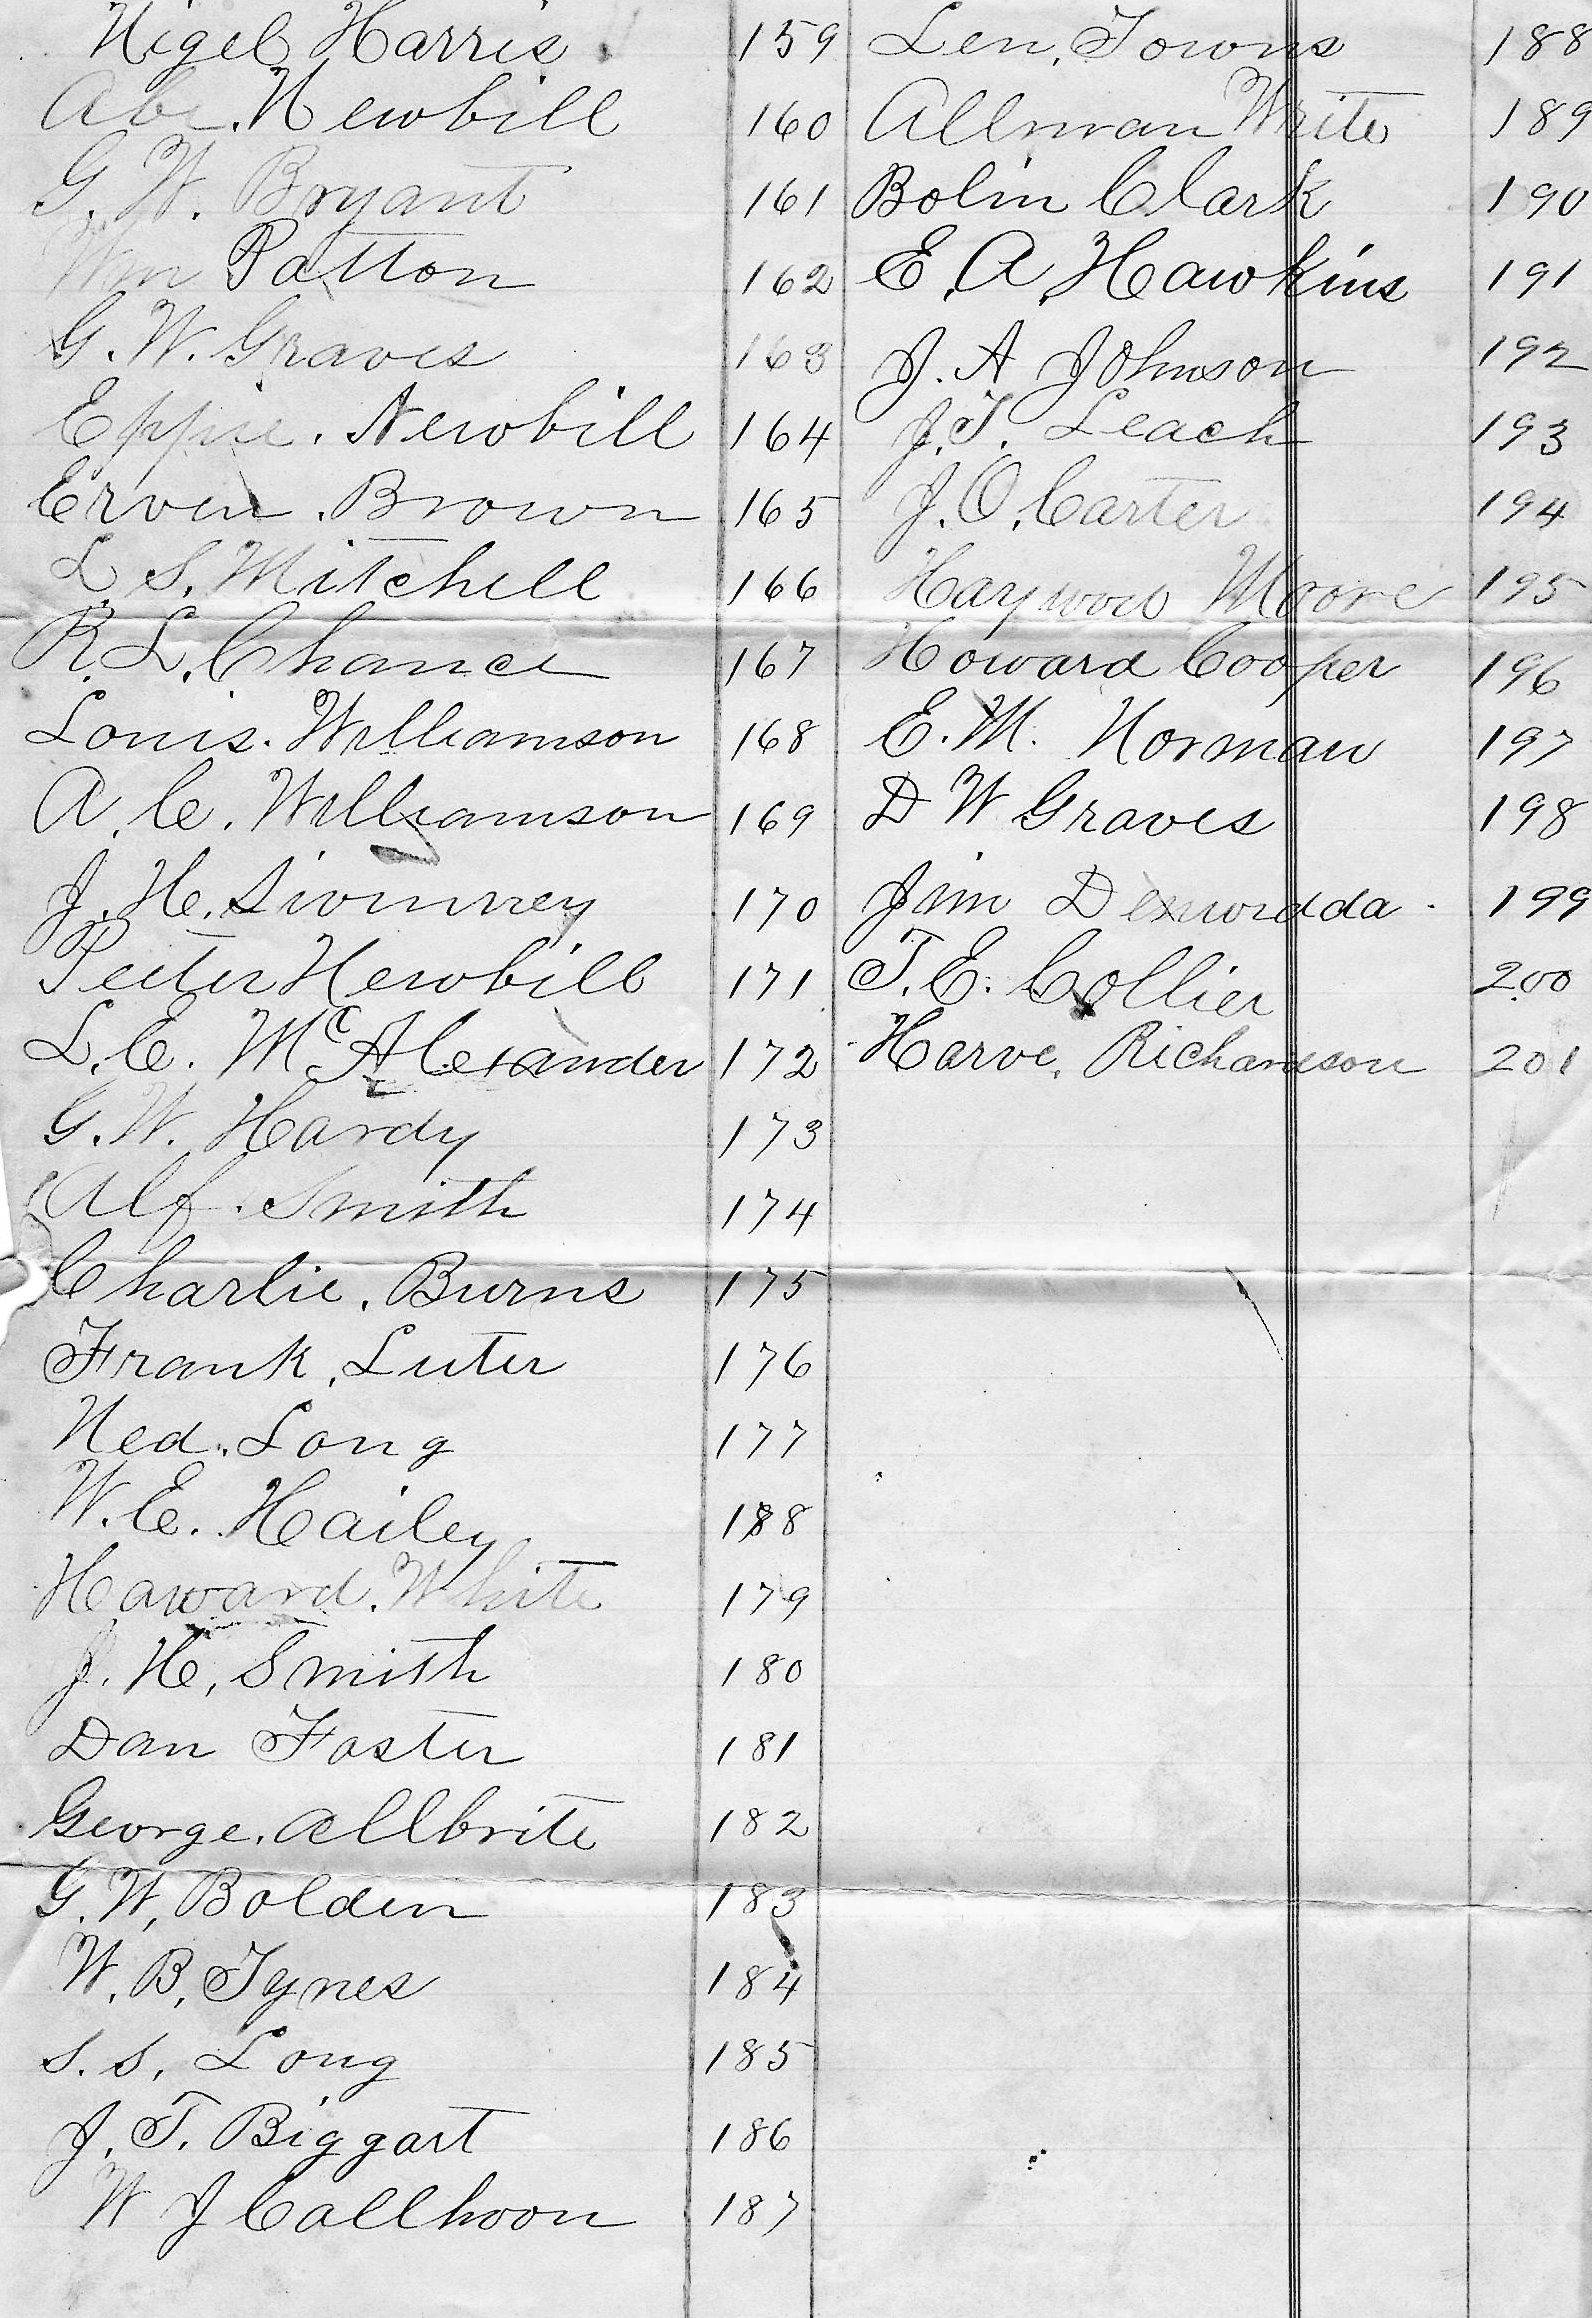 Nigel Harris 159
Abe. Newbill 160
G. W. Bryant 161
Wm Patton 162
G. W. Graves 163
Eppie. Newbill 164
Erven. Brown 165
L. S. Mitchell 166
R. L. Chance 167
Louis. Williamson 168
A. C. Williamson 169
J. H. 170
Peeter Newbill 171
L. C. McAlexander 172
G. W. Hardy 173
Alf. Smith 174
Charlie. Burns 175
Frank. Luter 176
Ned. Long 177
W. E. Hailey 188
Haward. White 179
J. H. Smith 180
Dan Foster 181
George. Allbrite 182
G. W. Bolden 183
W. B. Tynes 184
S. S. Long 185
J. T. Biggart 186
W J Callhoon 187
Len. Towns 188
Allman Write 189
Bolin Clark 190
E. A. Hawkins 191
J. A Johnson 192
J. T. Leach 193
J. O. Carter 194
Haywood Moore 195
Howard Cooper 196
E. M. Norman 197
D W Graves 198
Jim 199
T. E. Collier 200
Harve. Richardson 201